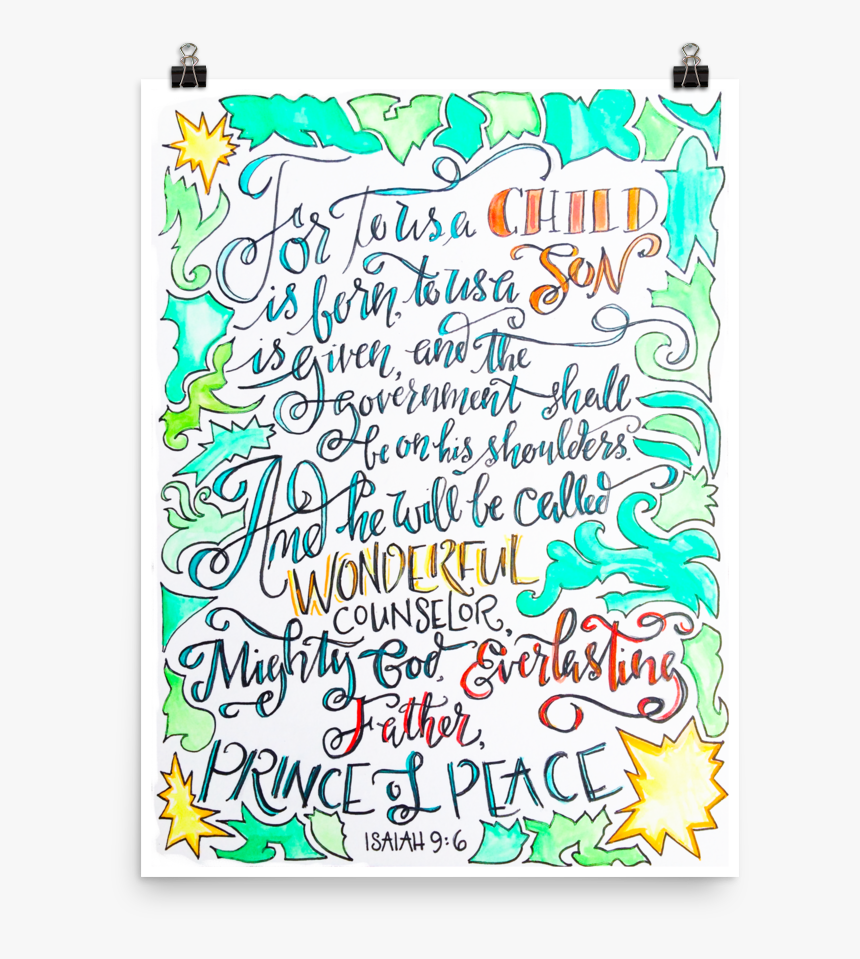 For to us a CHILD
is born, to us a SON
is given, and the
government shall
be on his shoulders.
And he will be called
WONDERFUL
COUNSELOR,
Mighty God, Everlasting
Father,
PRINCE of PEACE
ISAIAH 9:6